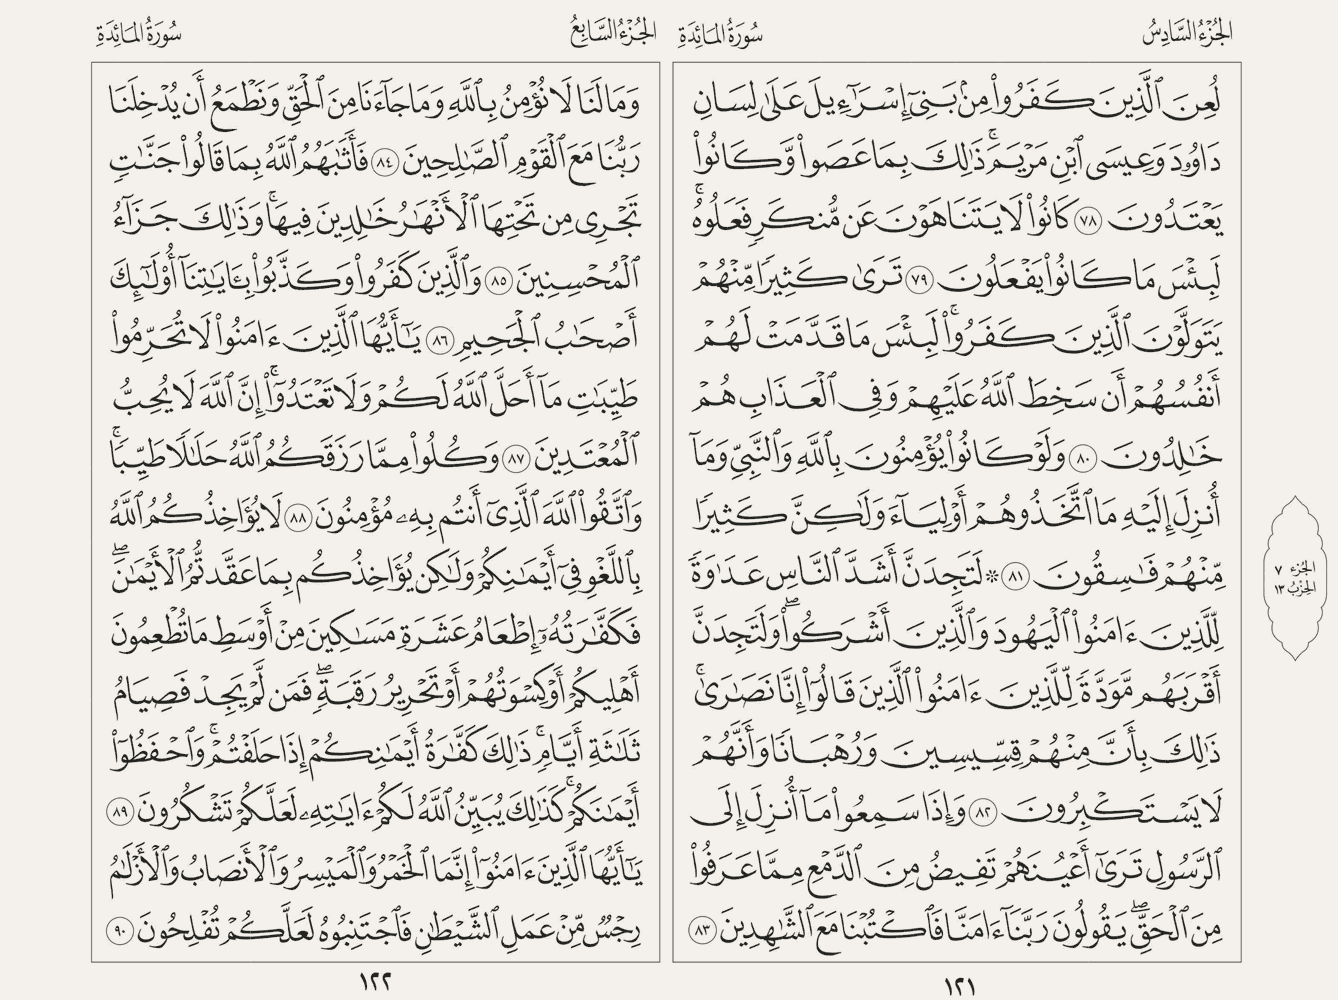 الجُزْءُ السَّادِسُ
سُورَةُ المَائِدَةِ
لُعِنَ ٱلَّذِينَ كَفَرُواْ مِنۢ بَنِيٓ إِسۡرَٰٓءِيلَ عَلَىٰ لِسَانِ
دَاوُۥدَ وَعِيسَى ٱبۡنِ مَرۡيَمَۚ ذَٰلِكَ بِمَا عَصَواْ وَّكَانُواْ
يَعۡتَدُونَ ٧٨ كَانُواْ لَا يَتَنَاهَوۡنَ عَن مُّنكَرٖ فَعَلُوهُۚ
لَبِئۡسَ مَا كَانُواْ يَفۡعَلُونَ ٧٩ تَرَىٰ كَثِيرٗا مِّنۡهُمۡ
يَتَوَلَّوۡنَ ٱلَّذِينَ كَفَرُواْۚ لَبِئۡسَ مَا قَدَّمَتۡ لَهُمۡ
أَنفُسُهُمۡ أَن سَخِطَ ٱللَّهُ عَلَيۡهِمۡ وَفِي ٱلۡعَذَابِ هُمۡ
خَٰلِدُونَ ٨٠ وَلَوۡ كَانُواْ يُؤۡمِنُونَ بِٱللَّهِ وَٱلنَّبِيِّ وَمَآ
أُنزِلَ إِلَيۡهِ مَا ٱتَّخَذُوهُمۡ أَوۡلِيَآءَ وَلَٰكِنَّ كَثِيرٗا
مِّنۡهُمۡ فَٰسِقُونَ ٨١ ۞ لَتَجِدَنَّ أَشَدَّ ٱلنَّاسِ عَدَٰوَةٗ
لِّلَّذِينَ ءَامَنُواْ ٱلۡيَهُودَ وَٱلَّذِينَ أَشۡرَكُواْۖ وَلَتَجِدَنَّ
أَقۡرَبَهُم مَّوَدَّةٗ لِّلَّذِينَ ءَامَنُواْ ٱلَّذِينَ قَالُوٓاْ إِنَّا نَصَٰرَىٰۚ
ذَٰلِكَ بِأَنَّ مِنۡهُمۡ قِسِّيسِينَ وَرُهۡبَانٗا وَأَنَّهُمۡ
لَا يَسۡتَكۡبِرُونَ ٨٢ وَإِذَا سَمِعُواْ مَآ أُنزِلَ إِلَى
ٱلرَّسُولِ تَرَىٰٓ أَعۡيُنَهُمۡ تَفِيضُ مِنَ ٱلدَّمۡعِ مِمَّا عَرَفُواْ
مِنَ ٱلۡحَقِّۖ يَقُولُونَ رَبَّنَآ ءَامَنَّا فَٱكۡتُبۡنَا مَعَ ٱلشَّٰهِدِينَ ٨٣
١٢١
الجُزْء ٧
الحِزْبُ ١٣
الجُزْءُ السَّابِعُ
سُورَةُ المَائِدَةِ
وَمَا لَنَا لَا نُؤۡمِنُ بِٱللَّهِ وَمَا جَآءَنَا مِنَ ٱلۡحَقِّ وَنَطۡمَعُ أَن يُدۡخِلَنَا
رَبُّنَا مَعَ ٱلۡقَوۡمِ ٱلصَّٰلِحِينَ ٨٤ فَأَثَٰبَهُمُ ٱللَّهُ بِمَا قَالُواْ جَنَّٰتٖ
تَجۡرِي مِن تَحۡتِهَا ٱلۡأَنۡهَٰرُ خَٰلِدِينَ فِيهَاۚ وَذَٰلِكَ جَزَآءُ
ٱلۡمُحۡسِنِينَ ٨٥ وَٱلَّذِينَ كَفَرُواْ وَكَذَّبُواْ بِـَٔايَٰتِنَآ أُوْلَٰٓئِكَ
أَصۡحَٰبُ ٱلۡجَحِيمِ ٨٦ يَٰٓأَيُّهَا ٱلَّذِينَ ءَامَنُواْ لَا تُحَرِّمُواْ
طَيِّبَٰتِ مَآ أَحَلَّ ٱللَّهُ لَكُمۡ وَلَا تَعۡتَدُوٓاْۚ إِنَّ ٱللَّهَ لَا يُحِبُّ
ٱلۡمُعۡتَدِينَ ٨٧ وَكُلُواْ مِمَّا رَزَقَكُمُ ٱللَّهُ حَلَٰلٗا طَيِّبٗاۚ
وَٱتَّقُواْ ٱللَّهَ ٱلَّذِيٓ أَنتُم بِهِۦ مُؤۡمِنُونَ ٨٨ لَا يُؤَاخِذُكُمُ ٱللَّهُ
بِٱللَّغۡوِ فِيٓ أَيۡمَٰنِكُمۡ وَلَٰكِن يُؤَاخِذُكُم بِمَا عَقَّدتُّمُ ٱلۡأَيۡمَٰنَۖ
فَكَفَّٰرَتُهُۥٓ إِطۡعَامُ عَشَرَةِ مَسَٰكِينَ مِنۡ أَوۡسَطِ مَا تُطۡعِمُونَ
أَهۡلِيكُمۡ أَوۡ كِسۡوَتُهُمۡ أَوۡ تَحۡرِيرُ رَقَبَةٖۖ فَمَن لَّمۡ يَجِدۡ فَصِيَامُ
ثَلَٰثَةِ أَيَّامٖۚ ذَٰلِكَ كَفَّٰرَةُ أَيۡمَٰنِكُمۡ إِذَا حَلَفۡتُمۡۚ وَٱحۡفَظُوٓاْ
أَيۡمَٰنَكُمۡۚ كَذَٰلِكَ يُبَيِّنُ ٱللَّهُ لَكُمۡ ءَايَٰتِهِۦ لَعَلَّكُمۡ تَشۡكُرُونَ ٨٩
يَٰٓأَيُّهَا ٱلَّذِينَ ءَامَنُوٓاْ إِنَّمَا ٱلۡخَمۡرُ وَٱلۡمَيۡسِرُ وَٱلۡأَنصَابُ وَٱلۡأَزۡلَٰمُ
رِجۡسٞ مِّنۡ عَمَلِ ٱلشَّيۡطَٰنِ فَٱجۡتَنِبُوهُ لَعَلَّكُمۡ تُفۡلِحُونَ ٩٠
١٢٢